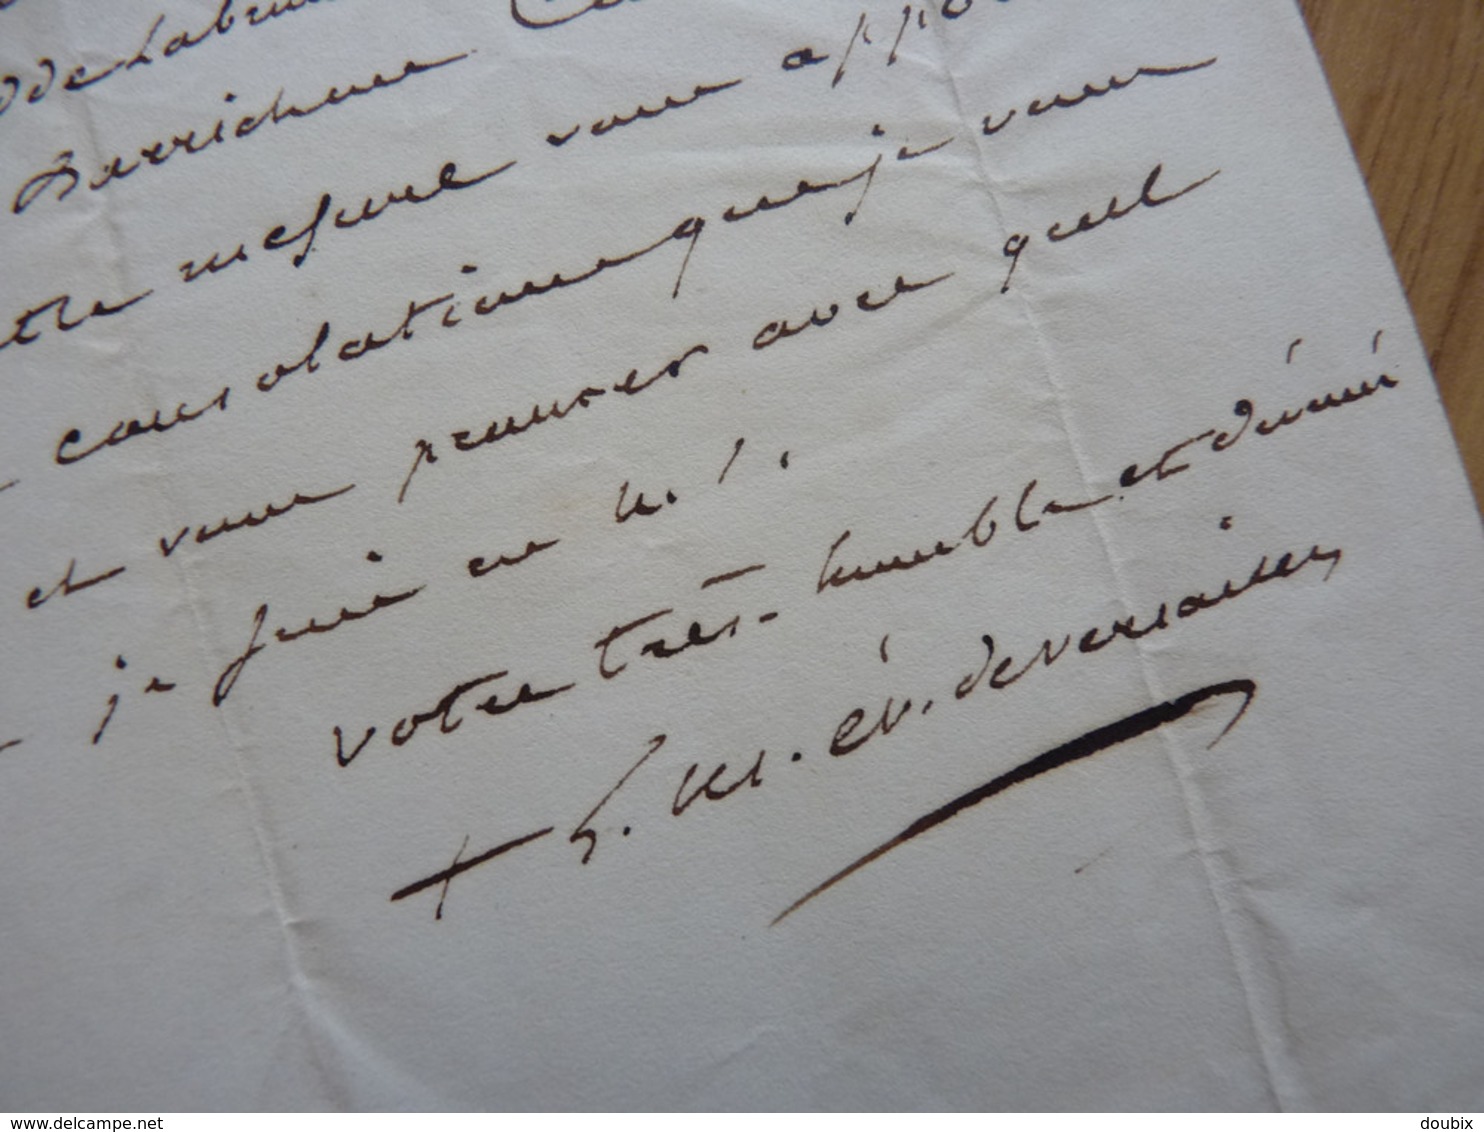 de Labru
mesure vous appo
consolations que je vous
et vous prouver avec quel
je suis en n. s.
votre très-humble et dévoué
+ L. M. év. de versailles
delcampe.net
doubix